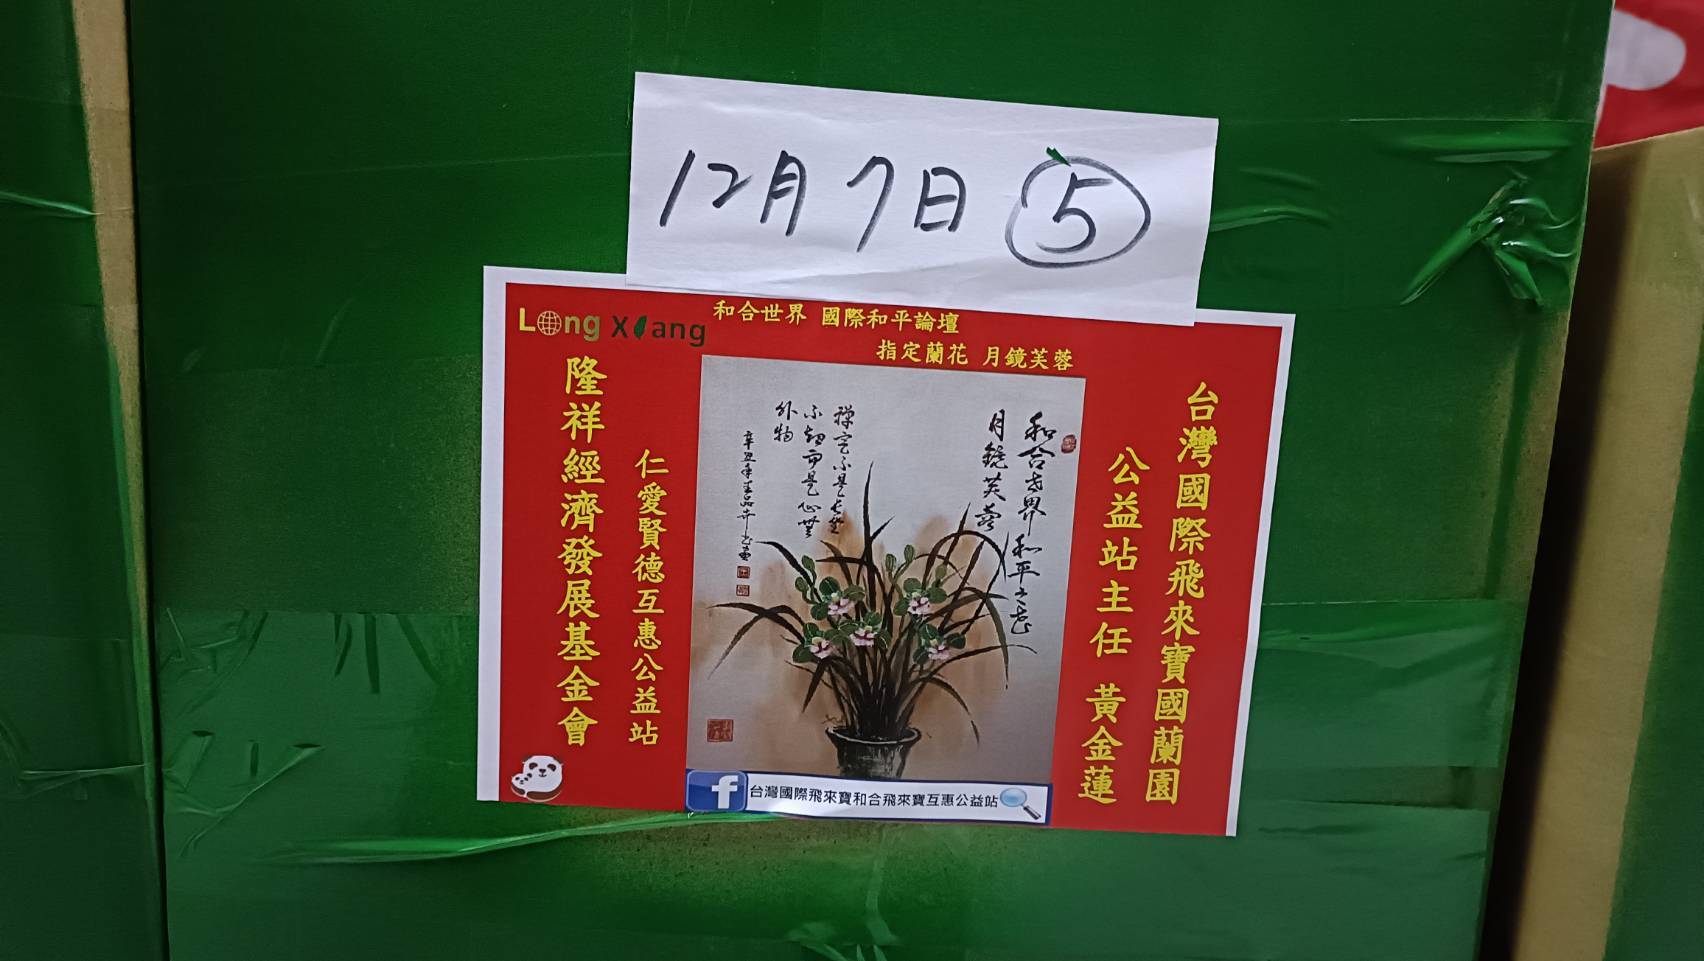 12月7日 ⑤
Long Xiang
和合世界 國際和平論壇
指定蘭花 月鏡芙蓉
台灣國際飛來寶國蘭園
公益站主任 黃金蓮
和合世界和平之花
月鏡芙蓉
禪定不是長坐
不動而是心無
外物
仁愛賢德互惠公益站
隆祥經濟發展基金會
f 台灣國際飛來寶和合飛來寶互惠公益站